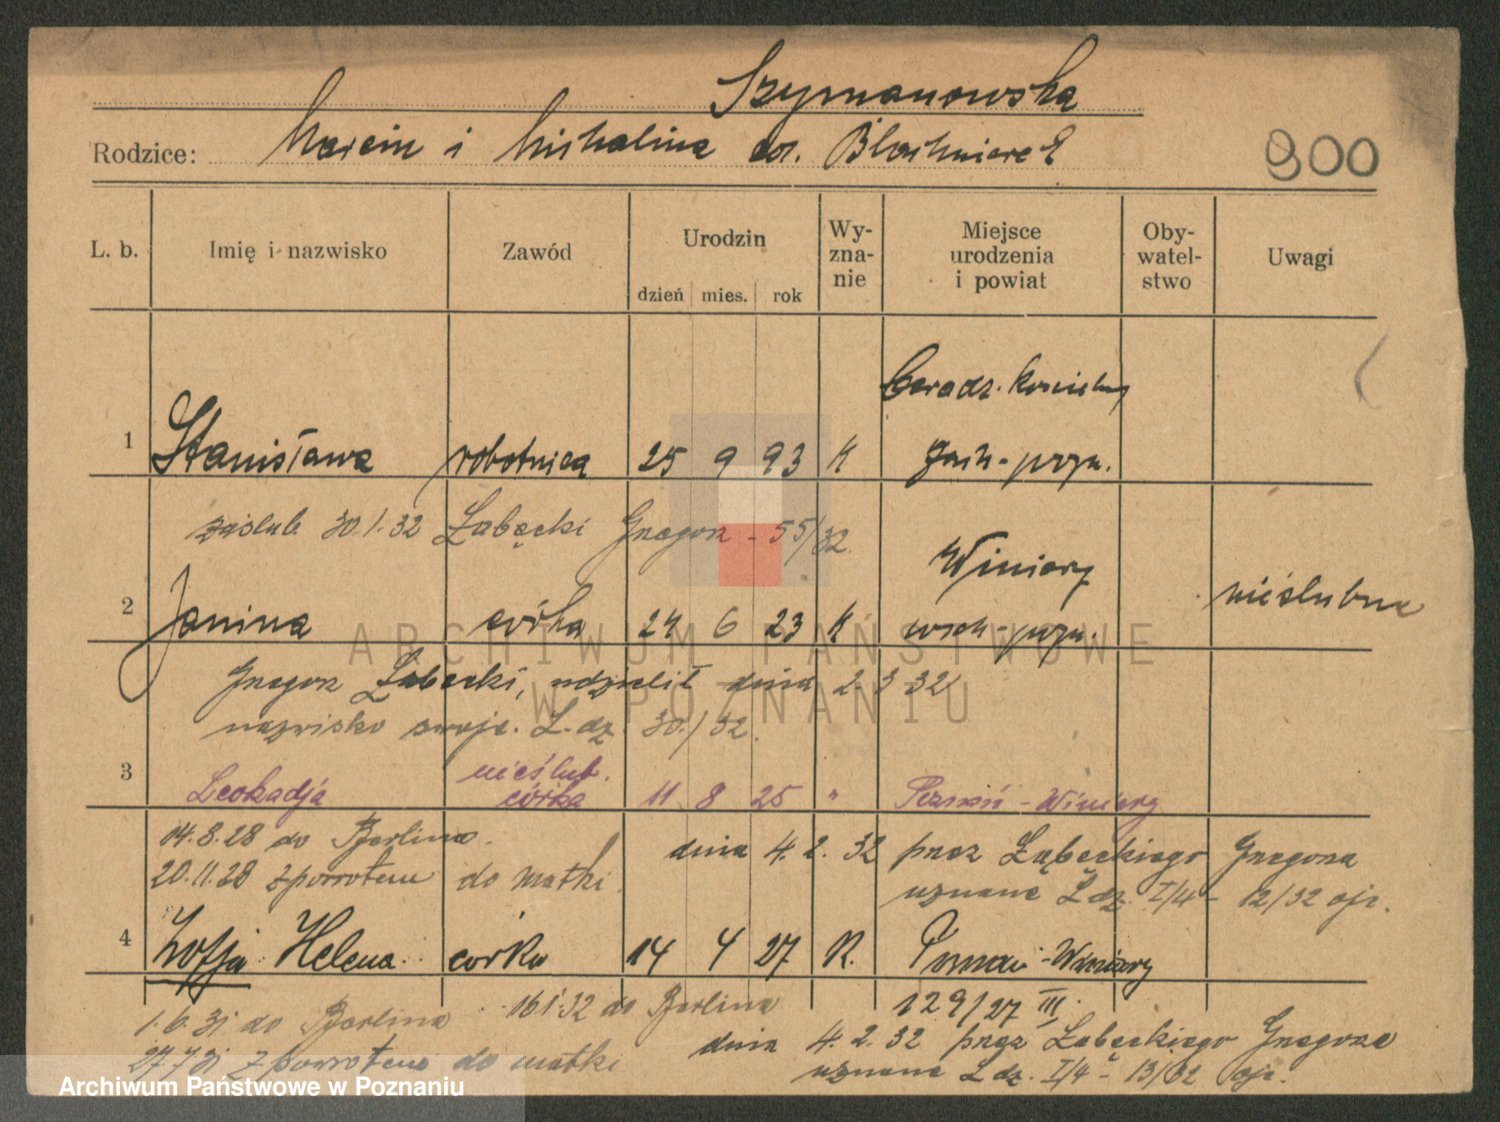 Szymanowska
Rodzice: Marcin i Michalina dr. Błochowiack
900
L. b. Imię i nazwisko Zawód Urodzin dzień mies. rok Wyznanie Miejsce urodzenia i powiat Obywatelstwo Uwagi
Ceradz. Kościelny
1 Stanisława robotnica 25 9 93 K zach-pozn.
zaślub. 30.1.32 Łabęcki Gregor - 55/32.
Winiary
2 Janina córka 24 6 23 K wsch-pozn. nieślubna
Gregor Łabęcki, udzielił dnia 2 3 32
nazwisko swoje. L. dz. 30/32.
nieślub.
3 Leokadja córka 11 8 25 " Poznań - Winiary
14.8.28 do Berlina. dnia 4.2.32 przez Łabęckiego Gregora
20.11.28 z powrotem do matki. uznana L dz. I/4 - 12/32 ojc.
4 Zofja Helena córka 14 4 27 K. Poznań - Winiary
1.6.31 do Berlina 16.1.32 do Berlina 129/27 III.
dnia 4.2.32 przez Łabęckiego Gregora
27.7.31 z powrotem do matki uznana L dz. I/4 - 13/32 ojc.
ARCHIWUM PAŃSTWOWE
W POZNANIU
Archiwum Państwowe w Poznaniu